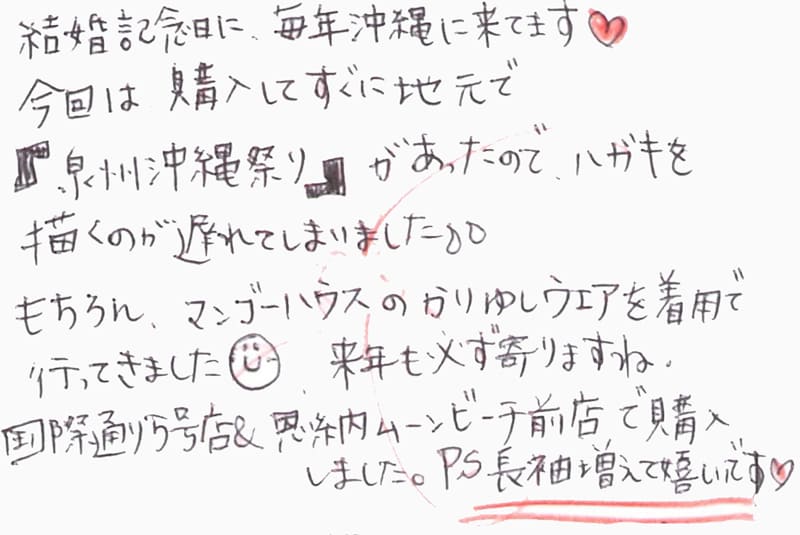 結婚記念日に、毎年沖縄に来てます♥
今回は購入してすぐに地元で
『泉州沖縄祭り』があったので、ハガキを
描くのが遅れてしまいました。。
もちろん、マンゴーハウスのかりゆしウエアを着用で
行ってきました☺ 来年も必ず寄りますね。
国際通り5号店&恩納ムーンビーチ前店で購入
しました。PS 長袖増えて嬉いです♥